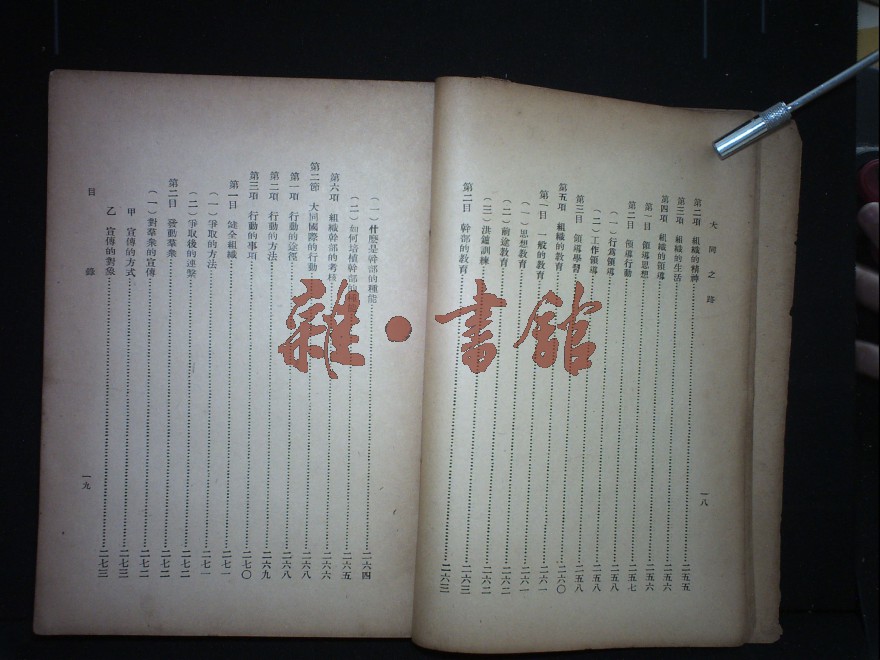 大同之路
一八
第二項 組織的精神……二五五
第三項 組織的生活……二五五
第四項 組織的領導……二五六
第一目 領導思想……二五六
第二目 領導行動……二五七
（一）行爲領導……二五八
（二）工作領導……二五八
第三目 領導學習……二五八
第五項 組織的教育……二六〇
第一目 一般的教育……二六一
（一）思想教育……二六一
（二）前途教育……二六二
（三）洪爐訓練……二六二
第二目 幹部的教育……二六三
（一）什麼是幹部的種能……二六四
（二）如何培植幹部的……二六五
第六項 組織幹部的考核……二六六
第二節 大同國際的行動……二六八
第一項 行動的途徑……二六八
第二項 行動的方法……二六九
第三項 行動的事項……二七〇
第一目 健全組織……二七一
（一）爭取的方法……二七一
（二）爭取後的連繫……二七二
第二目 發動羣衆……二七二
（一）對羣衆的宣傳……二七二
甲 宣傳的方式……二七三
乙 宣傳的對象……二七三
目錄
一九
雜·書館